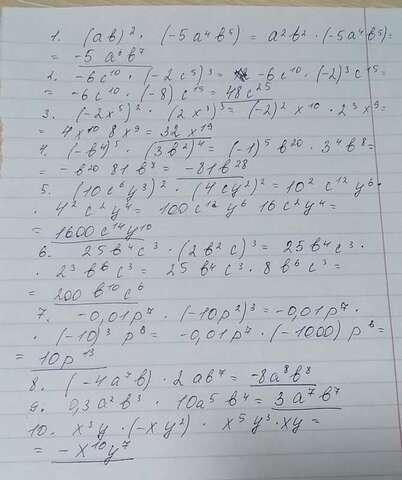 1. (ab)² · (-5a⁴b⁵) = a²b² · (-5a⁴b⁵)=
= -5a⁶b⁷
2. -6c¹⁰ · (-2c⁵)³ = -6c¹⁰ · (-2)³ c¹⁵=
= -6c¹⁰ · (-8) c¹⁵ = 48c²⁵
3. (-2x⁵)² · (2x³)³ = (-2)² x¹⁰ · 2³ x⁹=
= 4x¹⁰ 8x⁹ = 32x¹⁹
4. (-b⁴)⁵ · (3b²)⁴ = (-1)⁵ b²⁰ · 3⁴ b⁸=
= -b²⁰ 81b⁸ = -81b²⁸
5. (10c⁶y³)² · (4cy²)² = 10² c¹² y⁶ ·
· 4² c² y⁴ = 100c¹² y⁶ 16c² y⁴=
= 1600c¹⁴y¹⁰
6. 25b⁴c³ · (2b²c)³ = 25b⁴c³ ·
· 2³ b⁶ c³ = 25b⁴c³ · 8b⁶c³=
= 200b¹⁰c⁶
7. -0,01p⁷ · (-10p²)³ = -0,01p⁷ ·
· (-10)³ p⁶ = -0,01p⁷ · (-1000) p⁶=
= 10p¹³
8. (-4a⁷b) · 2ab⁷ = -8a⁸b⁸
9. 0,3a²b³ · 10a⁵b⁴ = 3a⁷b⁷
10. x³y · (-xy²) · x⁵y³ · xy=
= -x¹⁰y⁷